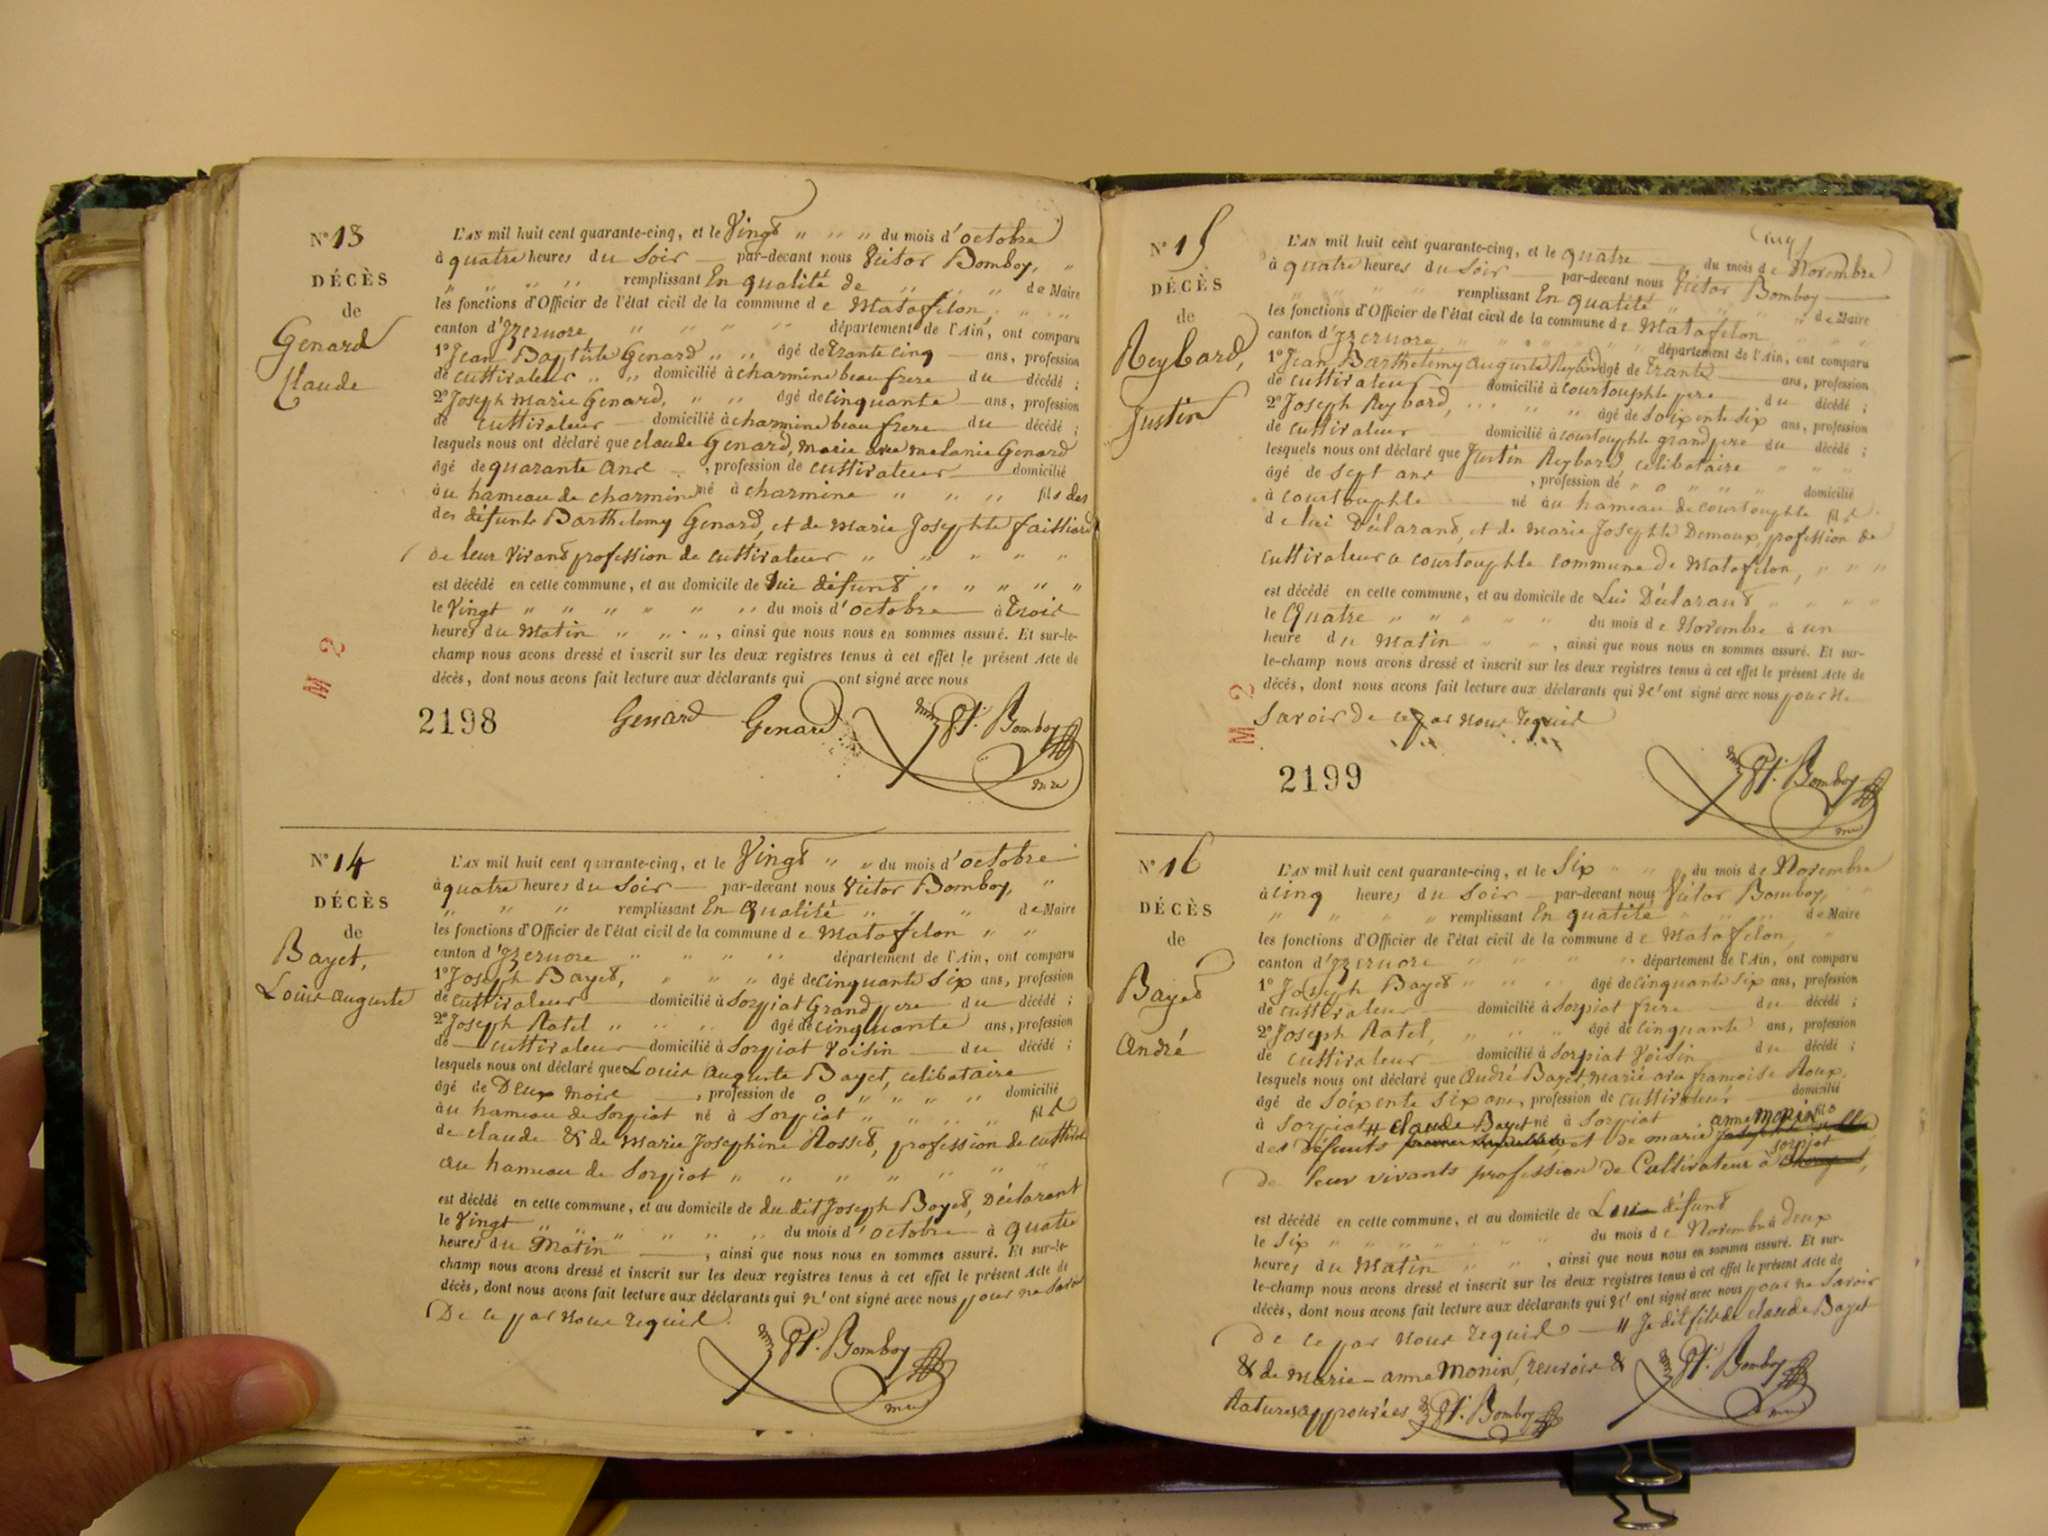 N° 13
DÉCÈS
de
Genard
Claude
L'AN mil huit cent quarante-cinq, et le Vingt " " " du mois d'octobre
à quatre heures du Soir — par-devant nous Victor Bomboy, "
" " " " remplissant En qualité de " " " de Maire
les fonctions d'Officier de l'état civil de la commune de Matafelon, " "
canton d'Izernore " " " " " département de l'Ain, ont comparu
1° Jean Baptiste Genard " " âgé de trante cinq — ans, profession
de cultivateur " " domicilié à charmine beau frere du décédé ;
2° Joseph Marie Genard, " " âgé de cinquante — ans, profession
de cultivateur — domicilié à charmine beau frere du décédé ;
lesquels nous ont déclaré que claude Genard, marie avec melanie Genard
âgé de quarante ans — , profession de cultivateur — domicilié
au hameau de charmine né à charmine " " " fils des
des défunts Barthelemy Genard, et de Marie Josephte failliard
de leur vivant profession de cultivateur " " " " "
est décédé en cette commune, et au domicile de lui défunt " " " " "
le Vingt " " " " " " du mois d'octobre — à trois
heures du Matin " " " ", ainsi que nous nous en sommes assuré. Et sur-le-
champ nous avons dressé et inscrit sur les deux registres tenus à cet effet le présent Acte de
décès, dont nous avons fait lecture aux déclarants qui ont signé avec nous
M 2
2198
Genard Genard Vr. Bomboy
mre
N° 14
DÉCÈS
de
Bayet,
Louis auguste
L'AN mil huit cent quarante-cinq, et le Vingt " " du mois d'octobre
à quatre heures du Soir — par-devant nous Victor Bomboy, "
" " " remplissant En qualité " " " de Maire
les fonctions d'Officier de l'état civil de la commune de Matafelon " "
canton d'Izernore " " " " département de l'Ain, ont comparu
1° Joseph Bayet, " " " " âgé de cinquante six ans, profession
de cultivateur — domicilié à Sorpiat Grand pere du décédé ;
2° Joseph Ratel " " " " âgé de cinquante ans, profession
de — cultivateur — domicilié à Sorpiat Voisin — du décédé ;
lesquels nous ont déclaré que Louis auguste Bayet, celibataire
âgé de Deux mois — , profession de " " " " " domicilié
au hameau de Sorpiat né à Sorpiat " " " " fils
de claude & de Marie Josephine Rosset, profession de cultivat
au hameau de Sorpiat " " " " " " "
est décédé en cette commune, et au domicile de du dit Joseph Bayet, Déclarant
le Vingt " " " " " du mois d'octobre — à quatre
heures du Matin — , ainsi que nous nous en sommes assuré. Et sur-le-
champ nous avons dressé et inscrit sur les deux registres tenus à cet effet le présent Acte de
décès, dont nous avons fait lecture aux déclarants qui n'ont signé avec nous pour ne Savoir
De ce par nous requis
Vr. Bomboy
mre
N° 15
DÉCÈS
de
Reybard,
Justin
L'AN mil huit cent quarante-cinq, et le quatre — du mois de Novembre
à quatre heures du Soir — par-devant nous Victor Bomboy —
" " " " remplissant En qualité " " " de Maire
les fonctions d'Officier de l'état civil de la commune de Matafelon
canton d'Izernore " " " " " " département de l'Ain, ont comparu
1° Jean Barthelemy auguste Reybard âgé de trante — ans, profession
de cultivateur — domicilié à courtouphle pere du décédé ;
2° Joseph Reybard, " " " " âgé de soixente six ans, profession
de cultivateur — domicilié à courtouphle grand pere du décédé ;
lesquels nous ont déclaré que Justin Reybard, celibataire " " "
âgé de sept ans — , profession de " " " " " domicilié
à courtouphle — né au hameau de courtouphle fils
de lui Déclarant, et de Marie Josephte Demoux, profession de
cultivateur a courtouphle commune de Matafelon, " " "
est décédé en cette commune, et au domicile de Lui Déclarant " " " "
le Quatre " " " " " " du mois de Novembre à un
heure du Matin " " ", ainsi que nous nous en sommes assuré. Et sur-
le-champ nous avons dressé et inscrit sur les deux registres tenus à cet effet le présent Acte de
décès, dont nous avons fait lecture aux déclarants qui n'ont signé avec nous pour Ne
Savoir De ce par nous requis
M 2
2199
Vr. Bomboy
mre
N° 16
DÉCÈS
de
Bayet
André
L'AN mil huit cent quarante-cinq, et le Six " " du mois de Novembre
à cinq heures du Soir — par-devant nous Victor Bomboy, "
" " " " remplissant En qualité " " " de Maire
les fonctions d'Officier de l'état civil de la commune de Matafelon, "
canton d'Izernore " " " " " département de l'Ain, ont comparu
1° Joseph Bayet " " " " âgé de cinquante six ans, profession
de cultivateur — domicilié à Sorpiat frere — du décédé ;
2° Joseph Ratel, " " " " âgé de cinquante ans, profession
de cultivateur — domicilié à Sorpiat Voisin — du décédé ;
lesquels nous ont déclaré que André Bayet, marié avec françoise Roux,
âgé de soixente six ans, profession de cultivateur — domicilié
à Sorpiat // claude Bayet né à Sorpiat anne Monin fils
des défunts et de marie
De leur vivants profession de Cultivateur à Sorpiat
est décédé en cette commune, et au domicile de Lui défunt
le Six " " " " " " " du mois de Novembre à deux
heures du Matin " " ", ainsi que nous nous en sommes assuré. Et sur-
le-champ nous avons dressé et inscrit sur les deux registres tenus à cet effet le présent Acte de
décès, dont nous avons fait lecture aux déclarants qui n'ont signé avec nous pour ne Savoir
De ce par nous requis — // Je dit fils de claude Bayet
& de Marie-anne Monin, renvoie &
Ratures approuvées Vr. Bomboy Vr. Bomboy
mre